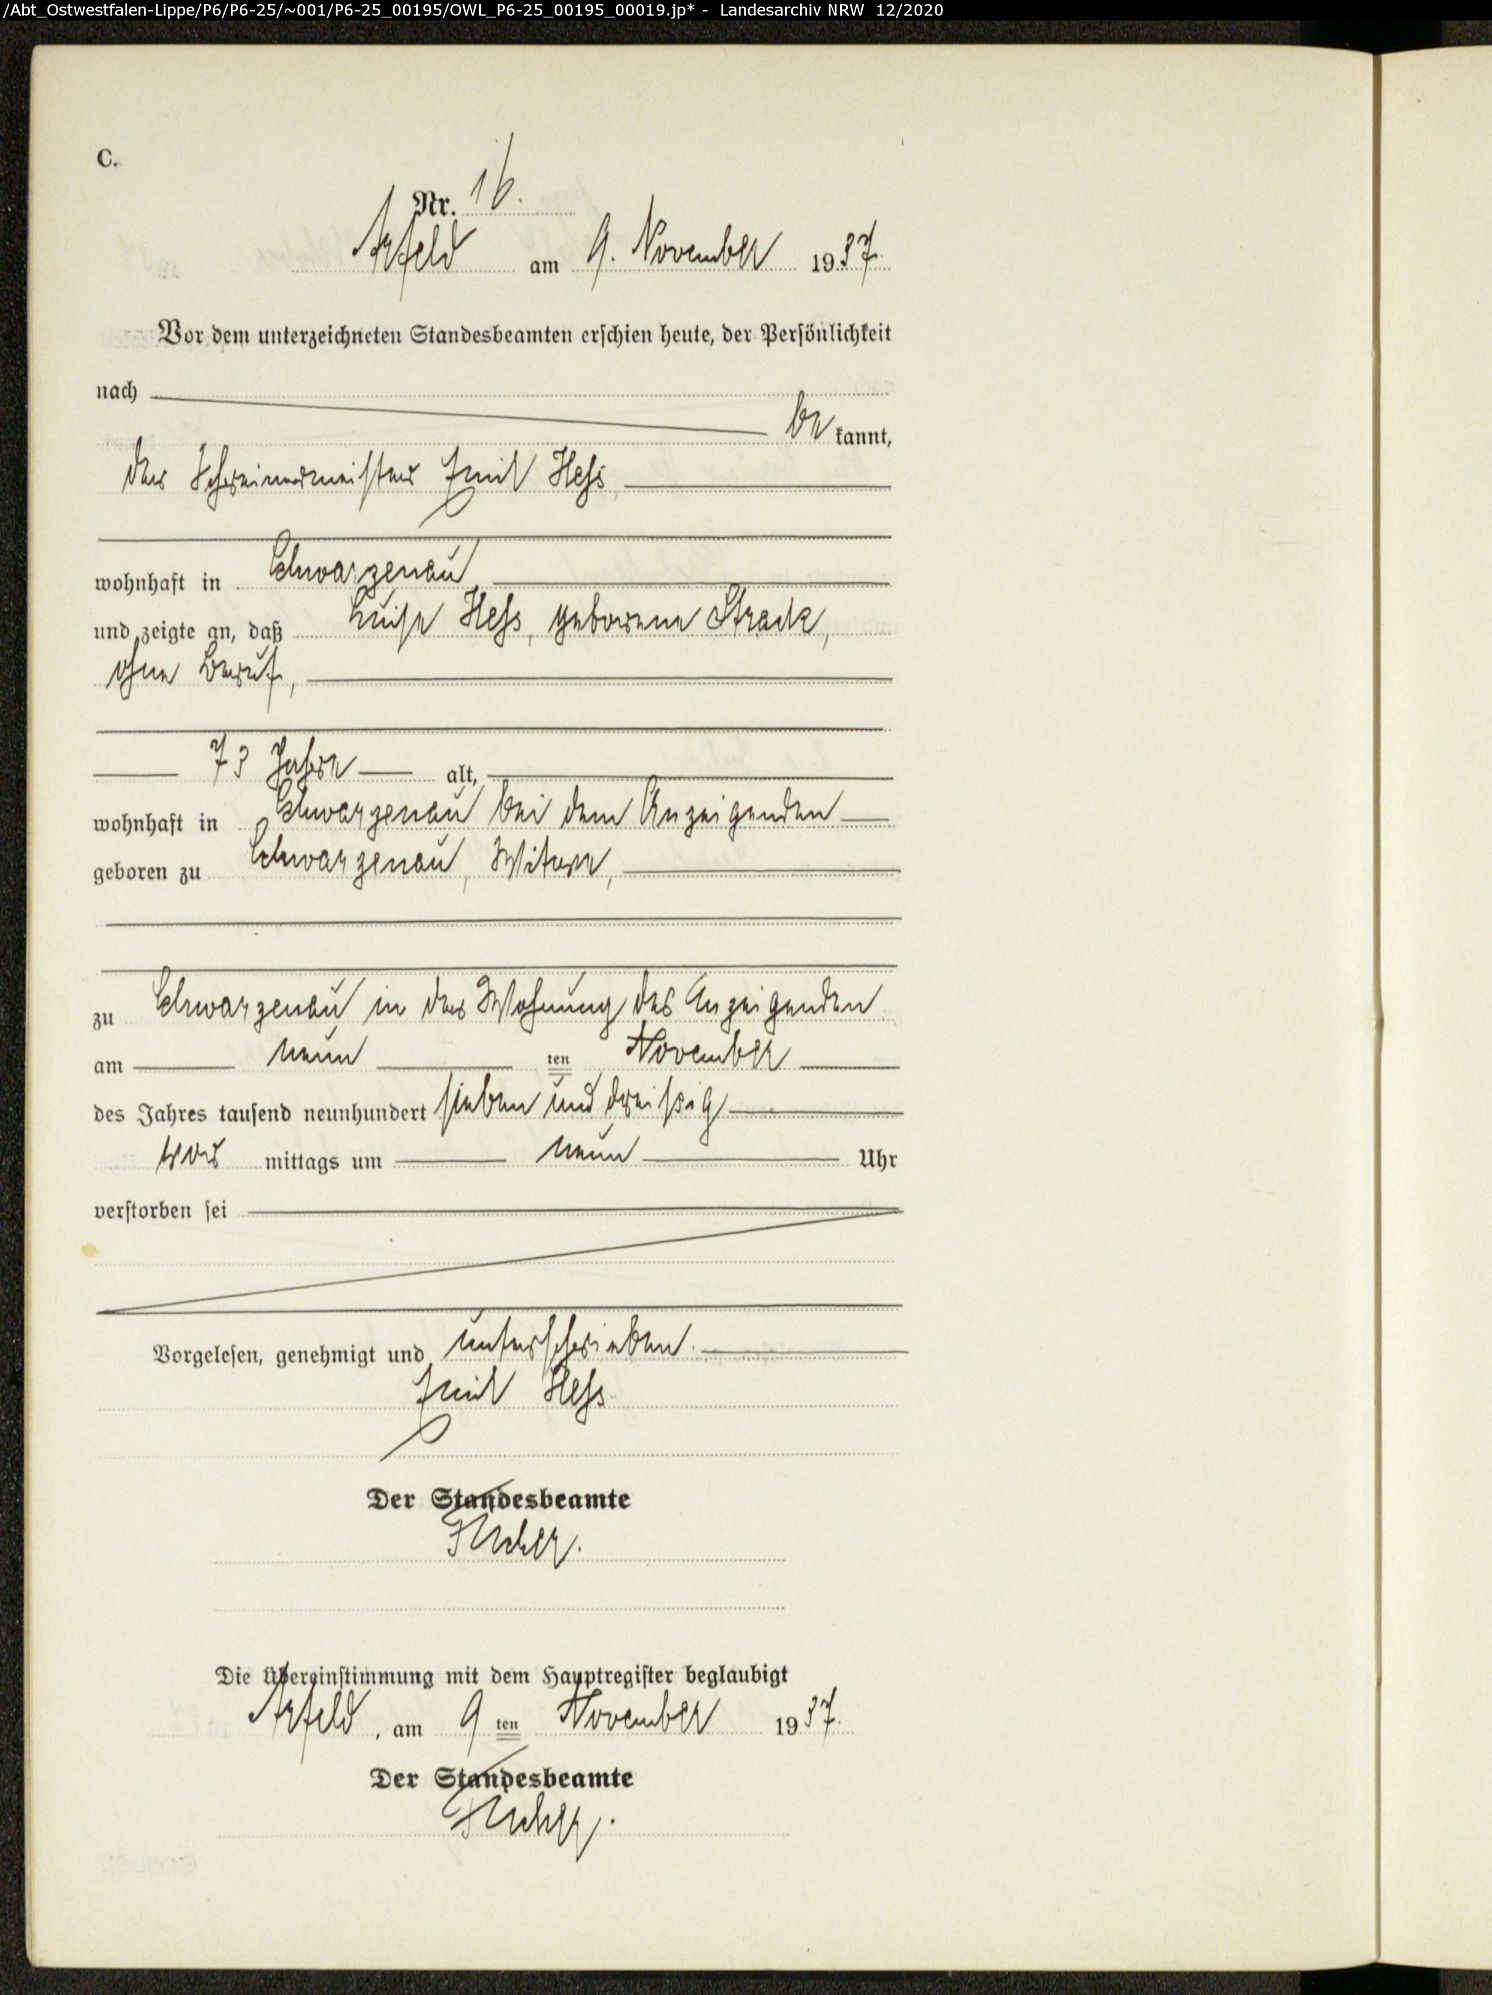 /Abt_Ostwestfalen-Lippe/P6/P6-25/~001/P6-25_00195/OWL_P6-25_00195_00019.jp* - Landesarchiv NRW 12/2020
C.
Nr. 16.
Arfeld am 9. November 1937.
Vor dem unterzeichneten Standesbeamten erschien heute, der Persönlichkeit
nach
be kannt,
der Schreinermeister Emil Hess
wohnhaft in Schwarzenau
und zeigte an, daß Luise Hess, geborene Strack,
ohne Beruf,
73 Jahre alt,
wohnhaft in Schwarzenau bei dem Anzeigenden
geboren zu Schwarzenau, Witwe,
zu Schwarzenau in der Wohnung des Anzeigenden
am neun ten November
des Jahres tausend neunhundert sieben und dreißig
vor mittags um neun Uhr
verstorben sei
Vorgelesen, genehmigt und unterschrieben.
Emil Hess
Der Standesbeamte
Die Übereinstimmung mit dem Hauptregister beglaubigt
Arfeld, am 9 ten November 1937.
Der Standesbeamte